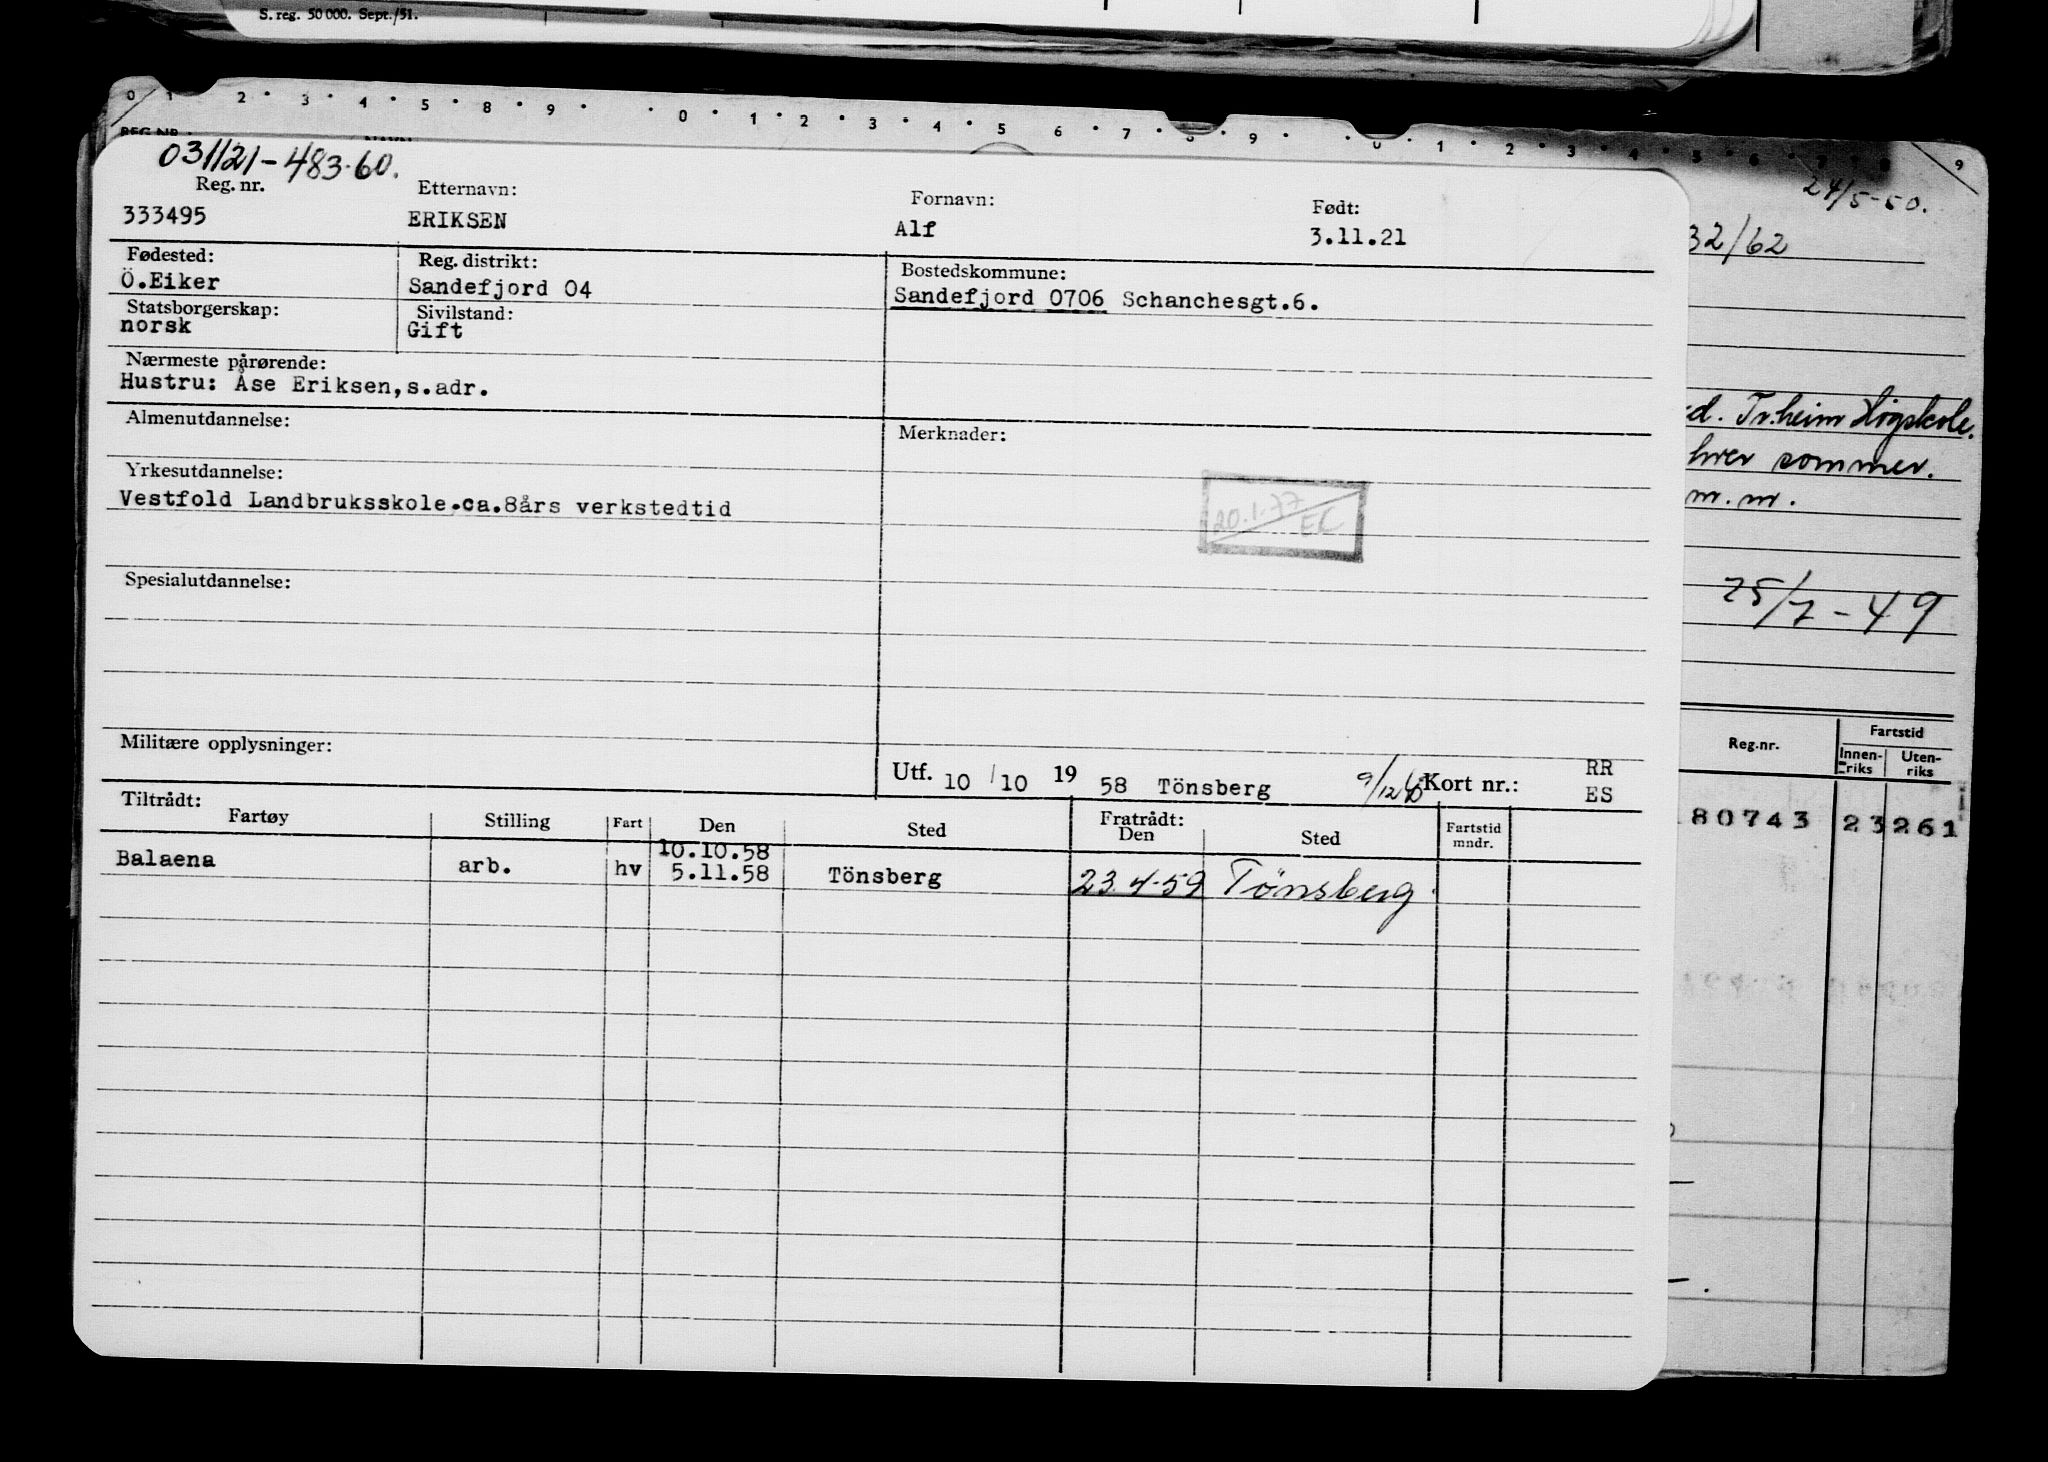 S. reg. 50 000. Sept./51.
0 1 2 3 4 5 8 9 0 1 2 3 4 5 6 7 8 9 0 1 2 3 4 5 6 7 8 9
REG.NR. NAVN
031121-483.60.
24/5-50.
Reg. nr. Etternavn: Fornavn: Født:
333495 ERIKSEN Alf 3.11.21
32/62
Fødested: Reg. distrikt: Bostedskommune:
Ö.Eiker Sandefjord 04 Sandefjord 0706 Schanchesgt.6.
Statsborgerskap: Sivilstand:
norsk Gift
Nærmeste pårørende:
Hustru: Åse Eriksen,s.adr.
Almenutdannelse: Merknader:
d. Tr.heim Høgskole.
Yrkesutdannelse:
hver sommer.
Vestfold Landbruksskole.ca.8års verkstedtid
m.m.
20.1.77
EC
Spesialutdannelse:
25/7-49
Militære opplysninger:
Utf. 10/10 19 58 Tönsberg 9/12 Kort nr.: RR
ES
Reg.nr. Fartstid
Innenriks Utenriks
Tiltrådt: Fratrådt:
Fartøy Stilling Fart Den Sted Den Sted Fartstid mndr.
80743 23 261
10.10.58
Balaena arb. hv 5.11.58 Tönsberg 23.4.59 Tönsberg